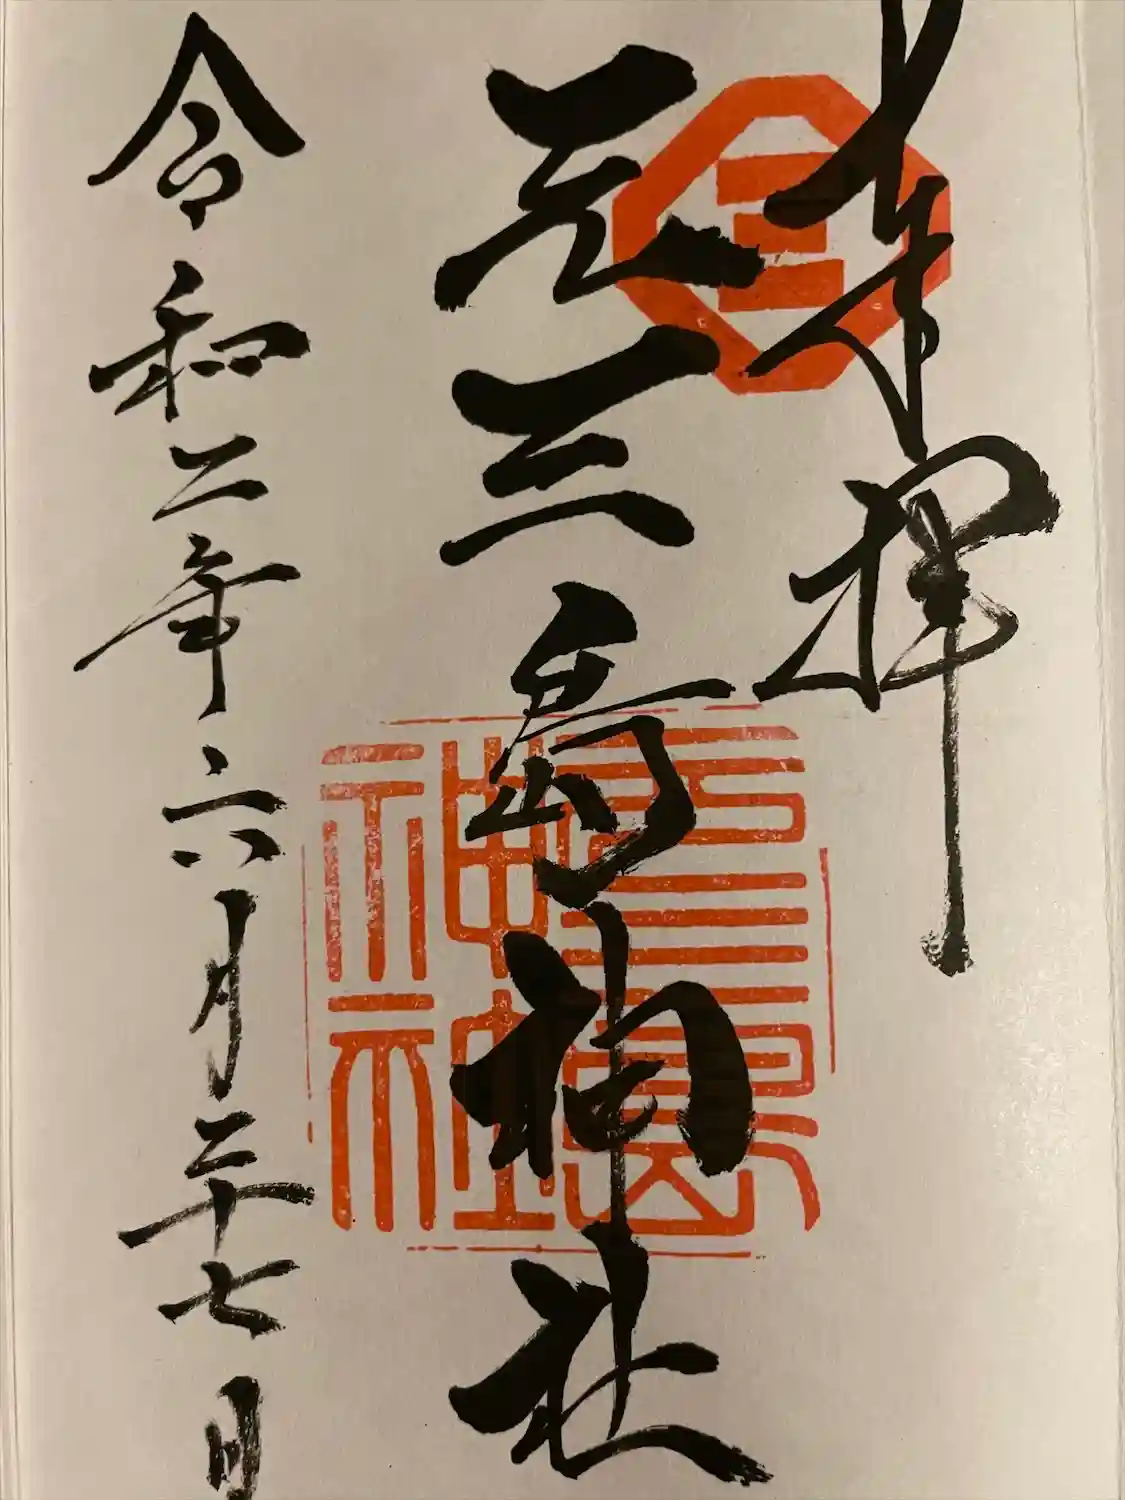 奉拝
三
元三島神社
元三島
神社
令和二年六月二十七日